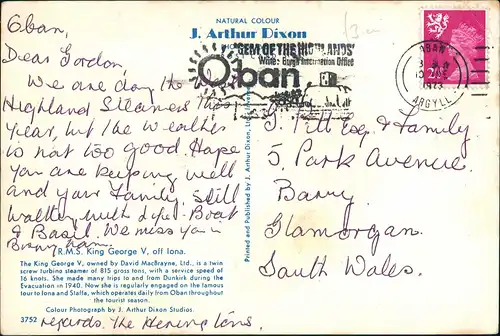 NATURAL COLOUR
J. Arthur Dixon
Oban,
Dear Gordon,
We are doing the
Highland Steamers this
Year, but the weather
is not too good. Hope
you are keeping well
and your Family. Still
walking with dye. Boat
& Basil. We miss you
ham.
R.M.S. King George V, off Iona.
The King George V, owned by David MacBrayne, Ltd., is a twin
screw turbine steamer of 815 gross tons, with a service speed of
16 knots. She made many trips to and from Dunkirk during the
Evacuation in 1940. Now she is regularly engaged on the famous
tour to Iona and Staffa, which operates daily from Oban throughout
the tourist season.
Colour Photograph by J. Arthur Dixon Studios.
3752
regards. The
Printed and Published by J. Arthur Dixon
'GEM OF THE HIGHLANDS'
Write: Burgh Information Office
Oban
OBAN
1973
ARGYLL
Esq & Family
5. Park Avenue.
Barry.
Glamorgan.
South Wales.